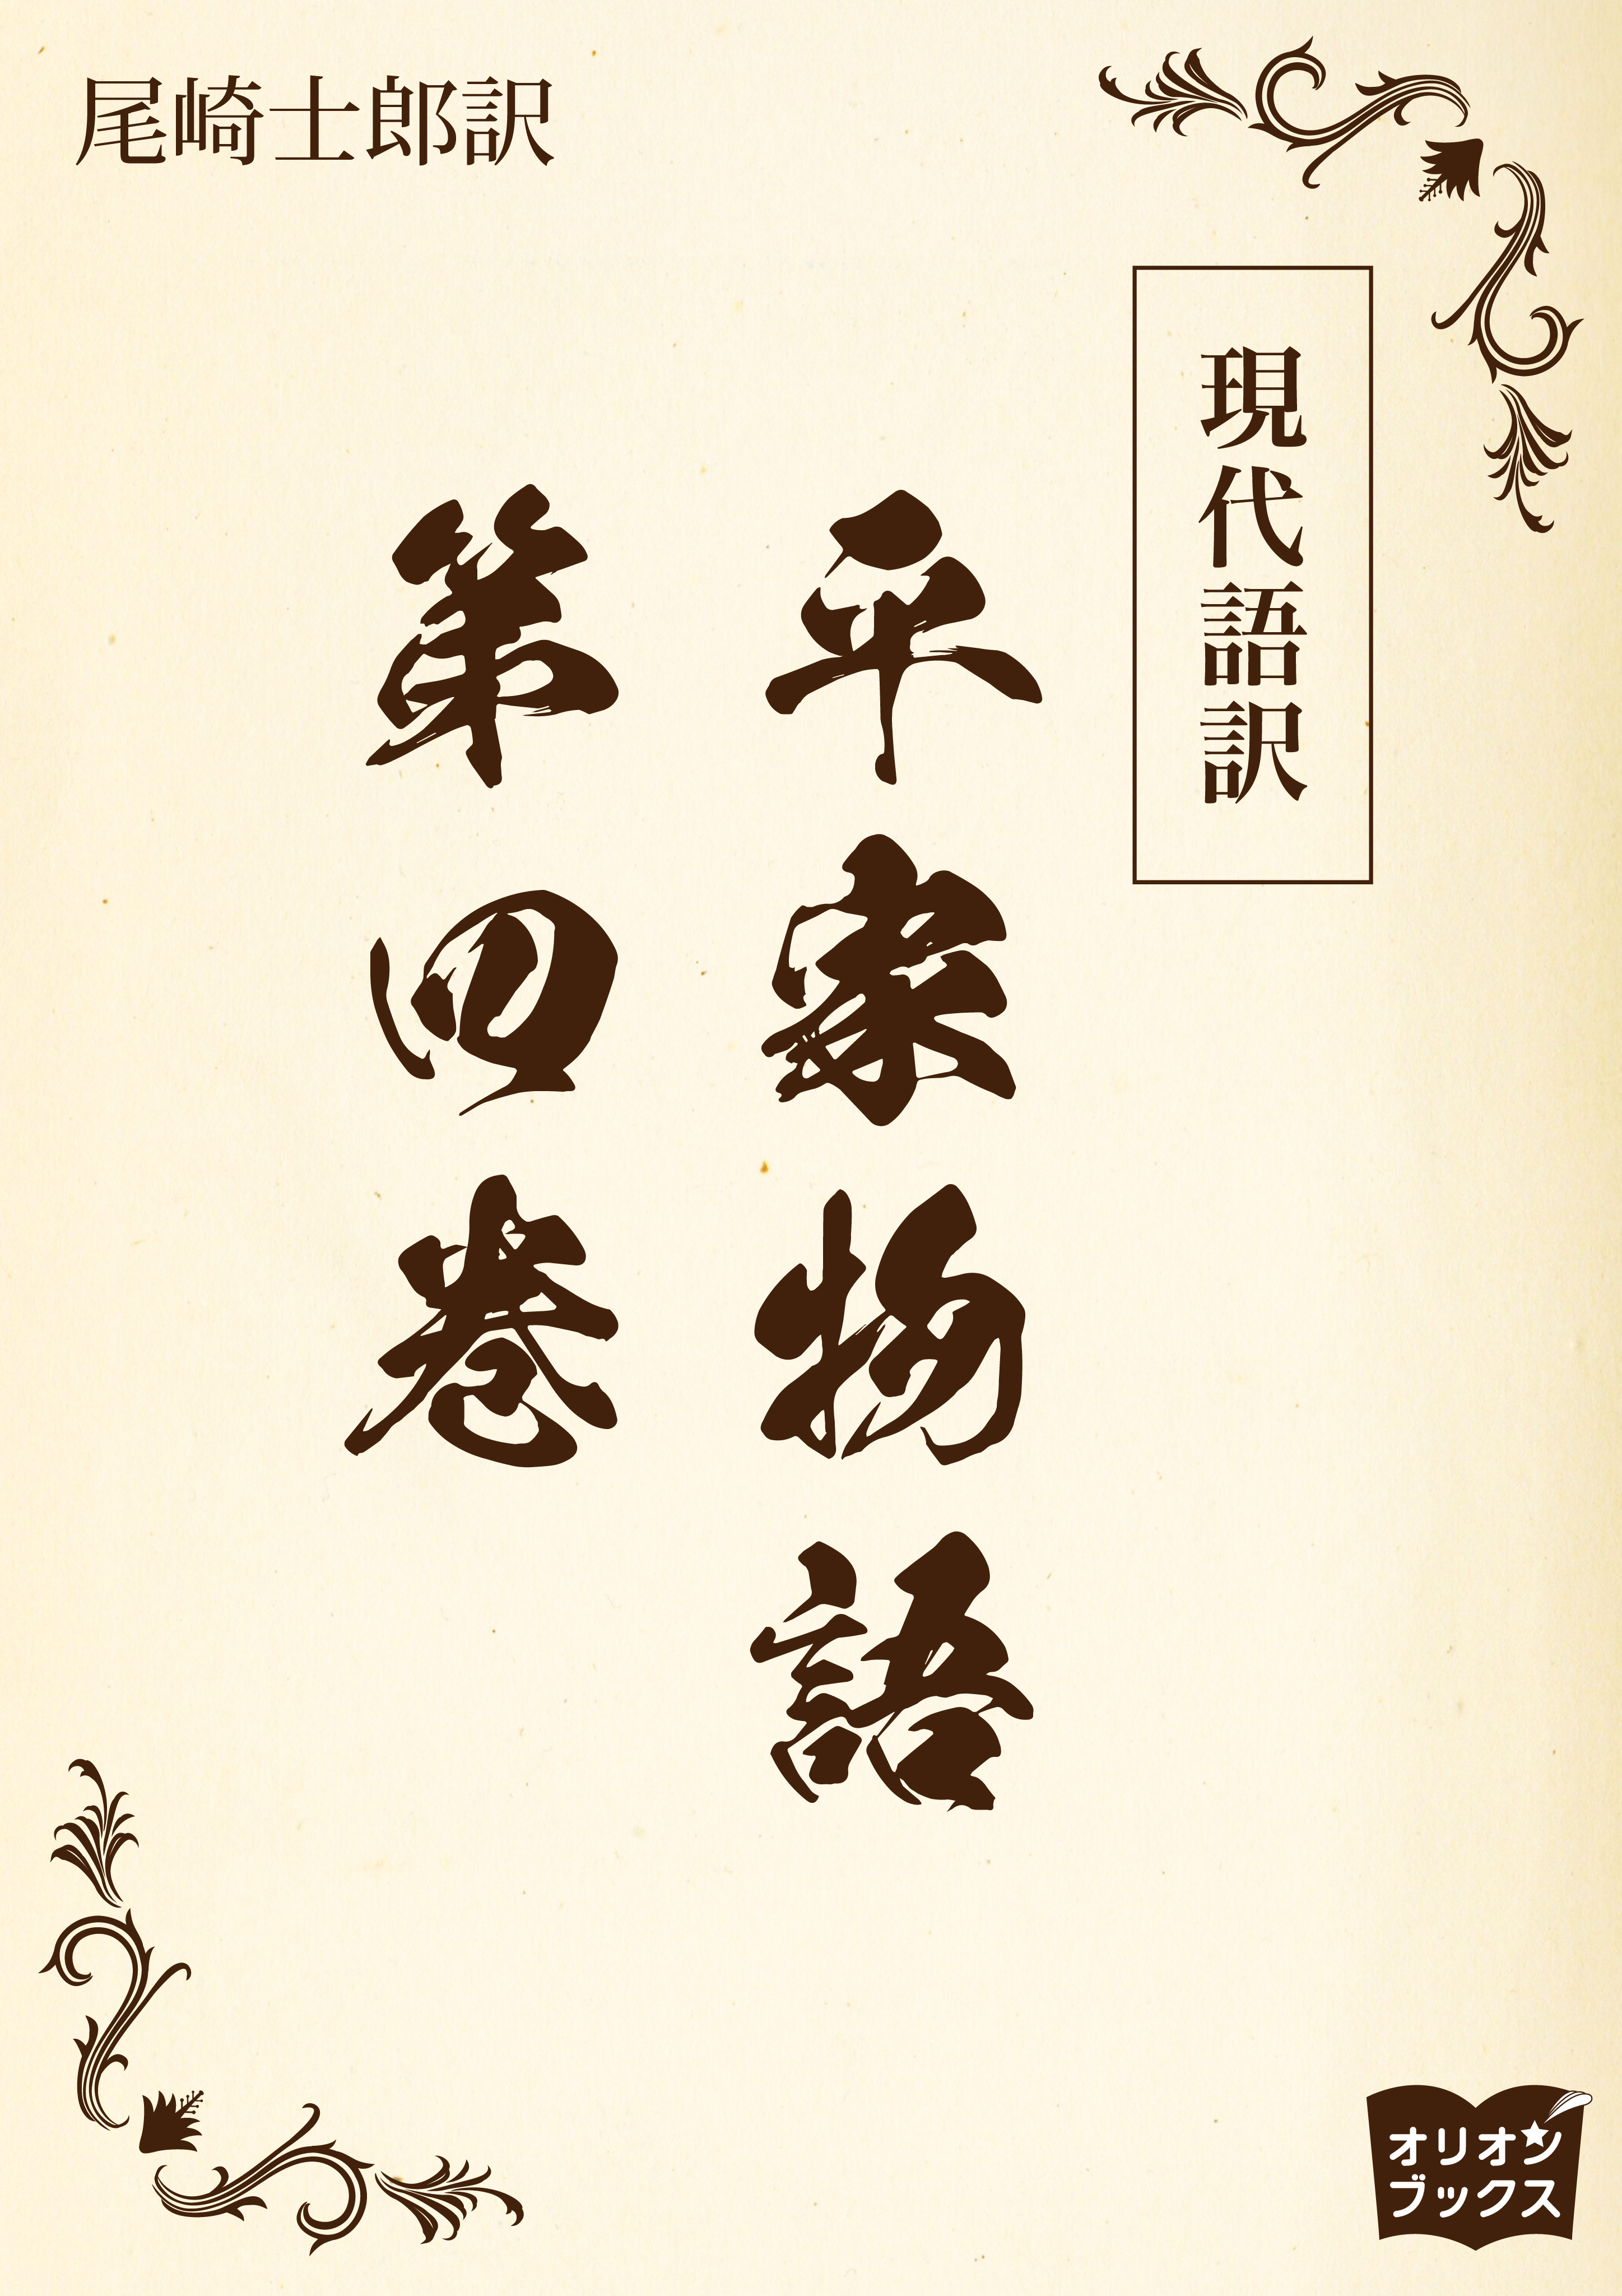 尾崎士郎訳
現代語訳
平家物語
第四巻
オリオン
ブックス